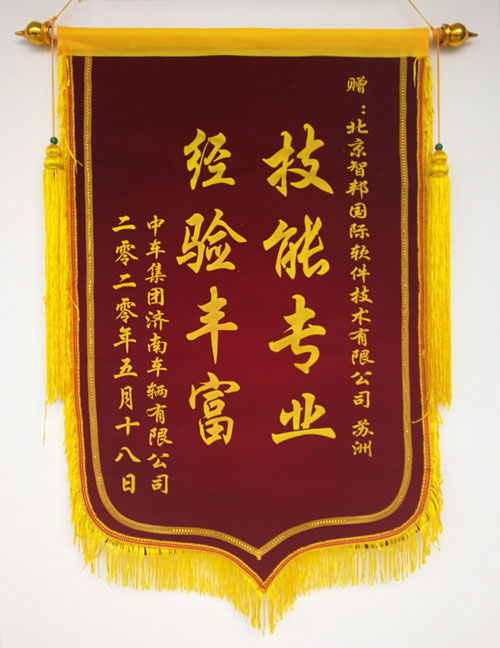 赠：北京智邦国际软件技术有限公司 苏洲
技能专业
经验丰富
中车集团济南车辆有限公司
二零二零年五月十八日